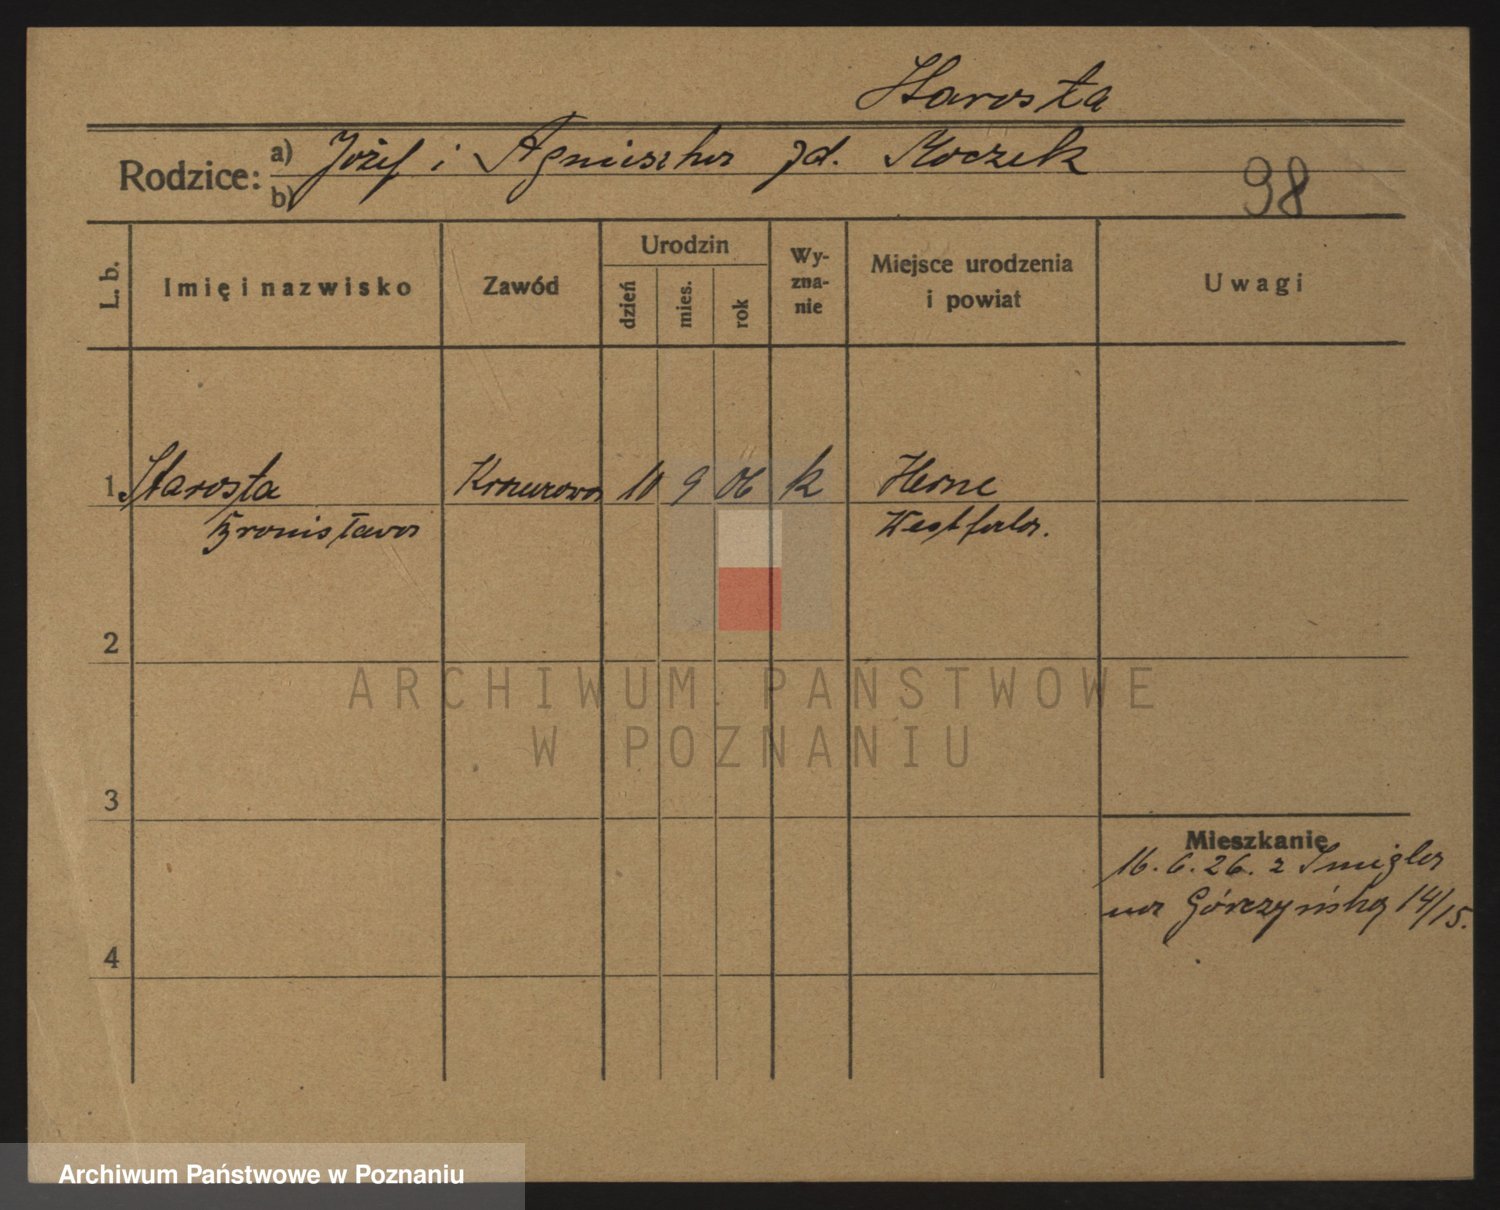 Starosta
Rodzice: a) Józef i Agnieszka zd. Kaczek
b)
98
L. b.
Imię i nazwisko
Zawód
Urodzin
dzień
mies.
rok
Wy-
zna-
nie
Miejsce urodzenia
i powiat
Uwagi
1 Starosta 10 9 06 k Herne
Bronisława Westfalia.
2
3
4
Mieszkanie
16. 6. 26. z Śmigla
na Górczyńską 14/15.
ARCHIWUM PAŃSTWOWE
W POZNANIU
Archiwum Państwowe w Poznaniu